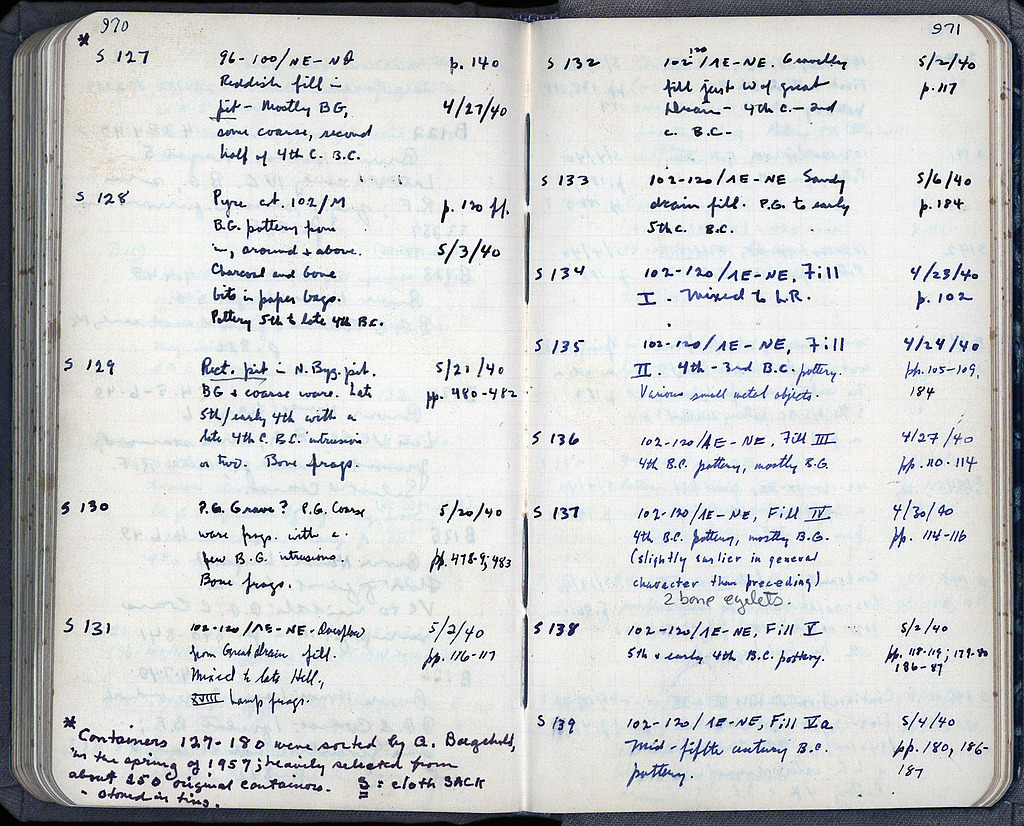 970
*
S 127 96-100/ΝΕ-ΝΘ p. 140
Reddish fill in
pit - Mostly BG, 4/27/40
some coarse, second
half of 4th C. B.C.
S 128 Pyre at 102/Μ p. 120 ff.
B.G. pottery from
in, around & above. 5/3/40
Charcoal and bone
bits in paper bags.
Pottery 5th to late 4th B.C.
S 129 Rect. pit in N. Byz. pit. 5/21/40
BG & coarse ware. Late pp. 480-482
5th/early 4th with a
late 4th C. B.C. intrusion
or two. Bone frags.
S 130 P.G. Grave? P.G. Coarse 5/20/40
ware frags. with a
few B.G. intrusions. pp. 478-9; 483
Bone frags.
S 131 102-120/ΛΕ-ΝΕ - Overflow 5/2/40
from Great drain fill. pp. 116-117
Mixed to late Hell.,
XVIII Lamp frags.
* Containers 127-180 were sorted by A. Bagehold,
in the spring of 1957; heavily selected from
about 250 original containers. S = cloth SACK
stored in tins.
971
S 132 102-120/ΛΕ-ΝΕ. Gravelly 5/2/40
fill just W of great p. 117
Drain - 4th C. - 2nd
c. B.C.-
S 133 102-120/ΛΕ-ΝΕ Sandy 5/6/40
drain fill. P.G. to early p. 184
5th C. B.C.
S 134 102-120/ΛΕ-ΝΕ, Fill 4/23/40
I. Mixed to L.R. p. 102
S 135 102-120/ΛΕ-ΝΕ, Fill 4/24/40
II. 4th-3rd B.C. pottery. pp. 105-109,
Various small metal objects. 184
S 136 102-120/ΛΕ-ΝΕ, Fill III 4/27/40
4th B.C. pottery, mostly B.G. pp. 110-114
S 137 102-120/ΛΕ-ΝΕ, Fill IV 4/30/40
4th B.C. pottery, mostly B.G. pp. 114-116
(slightly earlier in general
character than preceding)
2 bone eyelets.
S 138 102-120/ΛΕ-ΝΕ, Fill V 5/2/40
5th & early 4th B.C. pottery. pp. 118-119; 179-80
186-87
S 139 102-120/ΛΕ-ΝΕ, Fill Va 5/4/40
Mid-fifth century B.C. pp. 180, 186-
pottery. 187